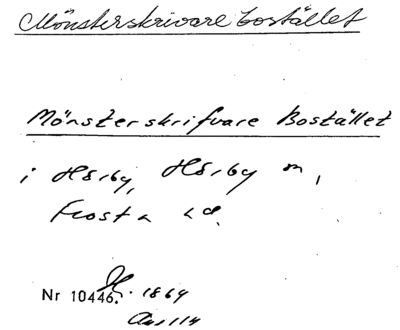 Mönsterskrivarebostället
Mönsterskrifvare Bostället
i Hörby, Hörby sn,
Frosta hd.
Nr 10446. 1864